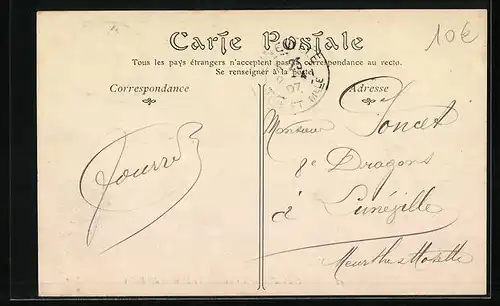 Carte Postale
10€
Tous les pays étrangers n'acceptent pas la correspondance au recto.
Se renseigner à la poste
Correspondance
Adresse
Monsieur Poncet
8e Dragons
à Lunéville
Meurthe & Moselle